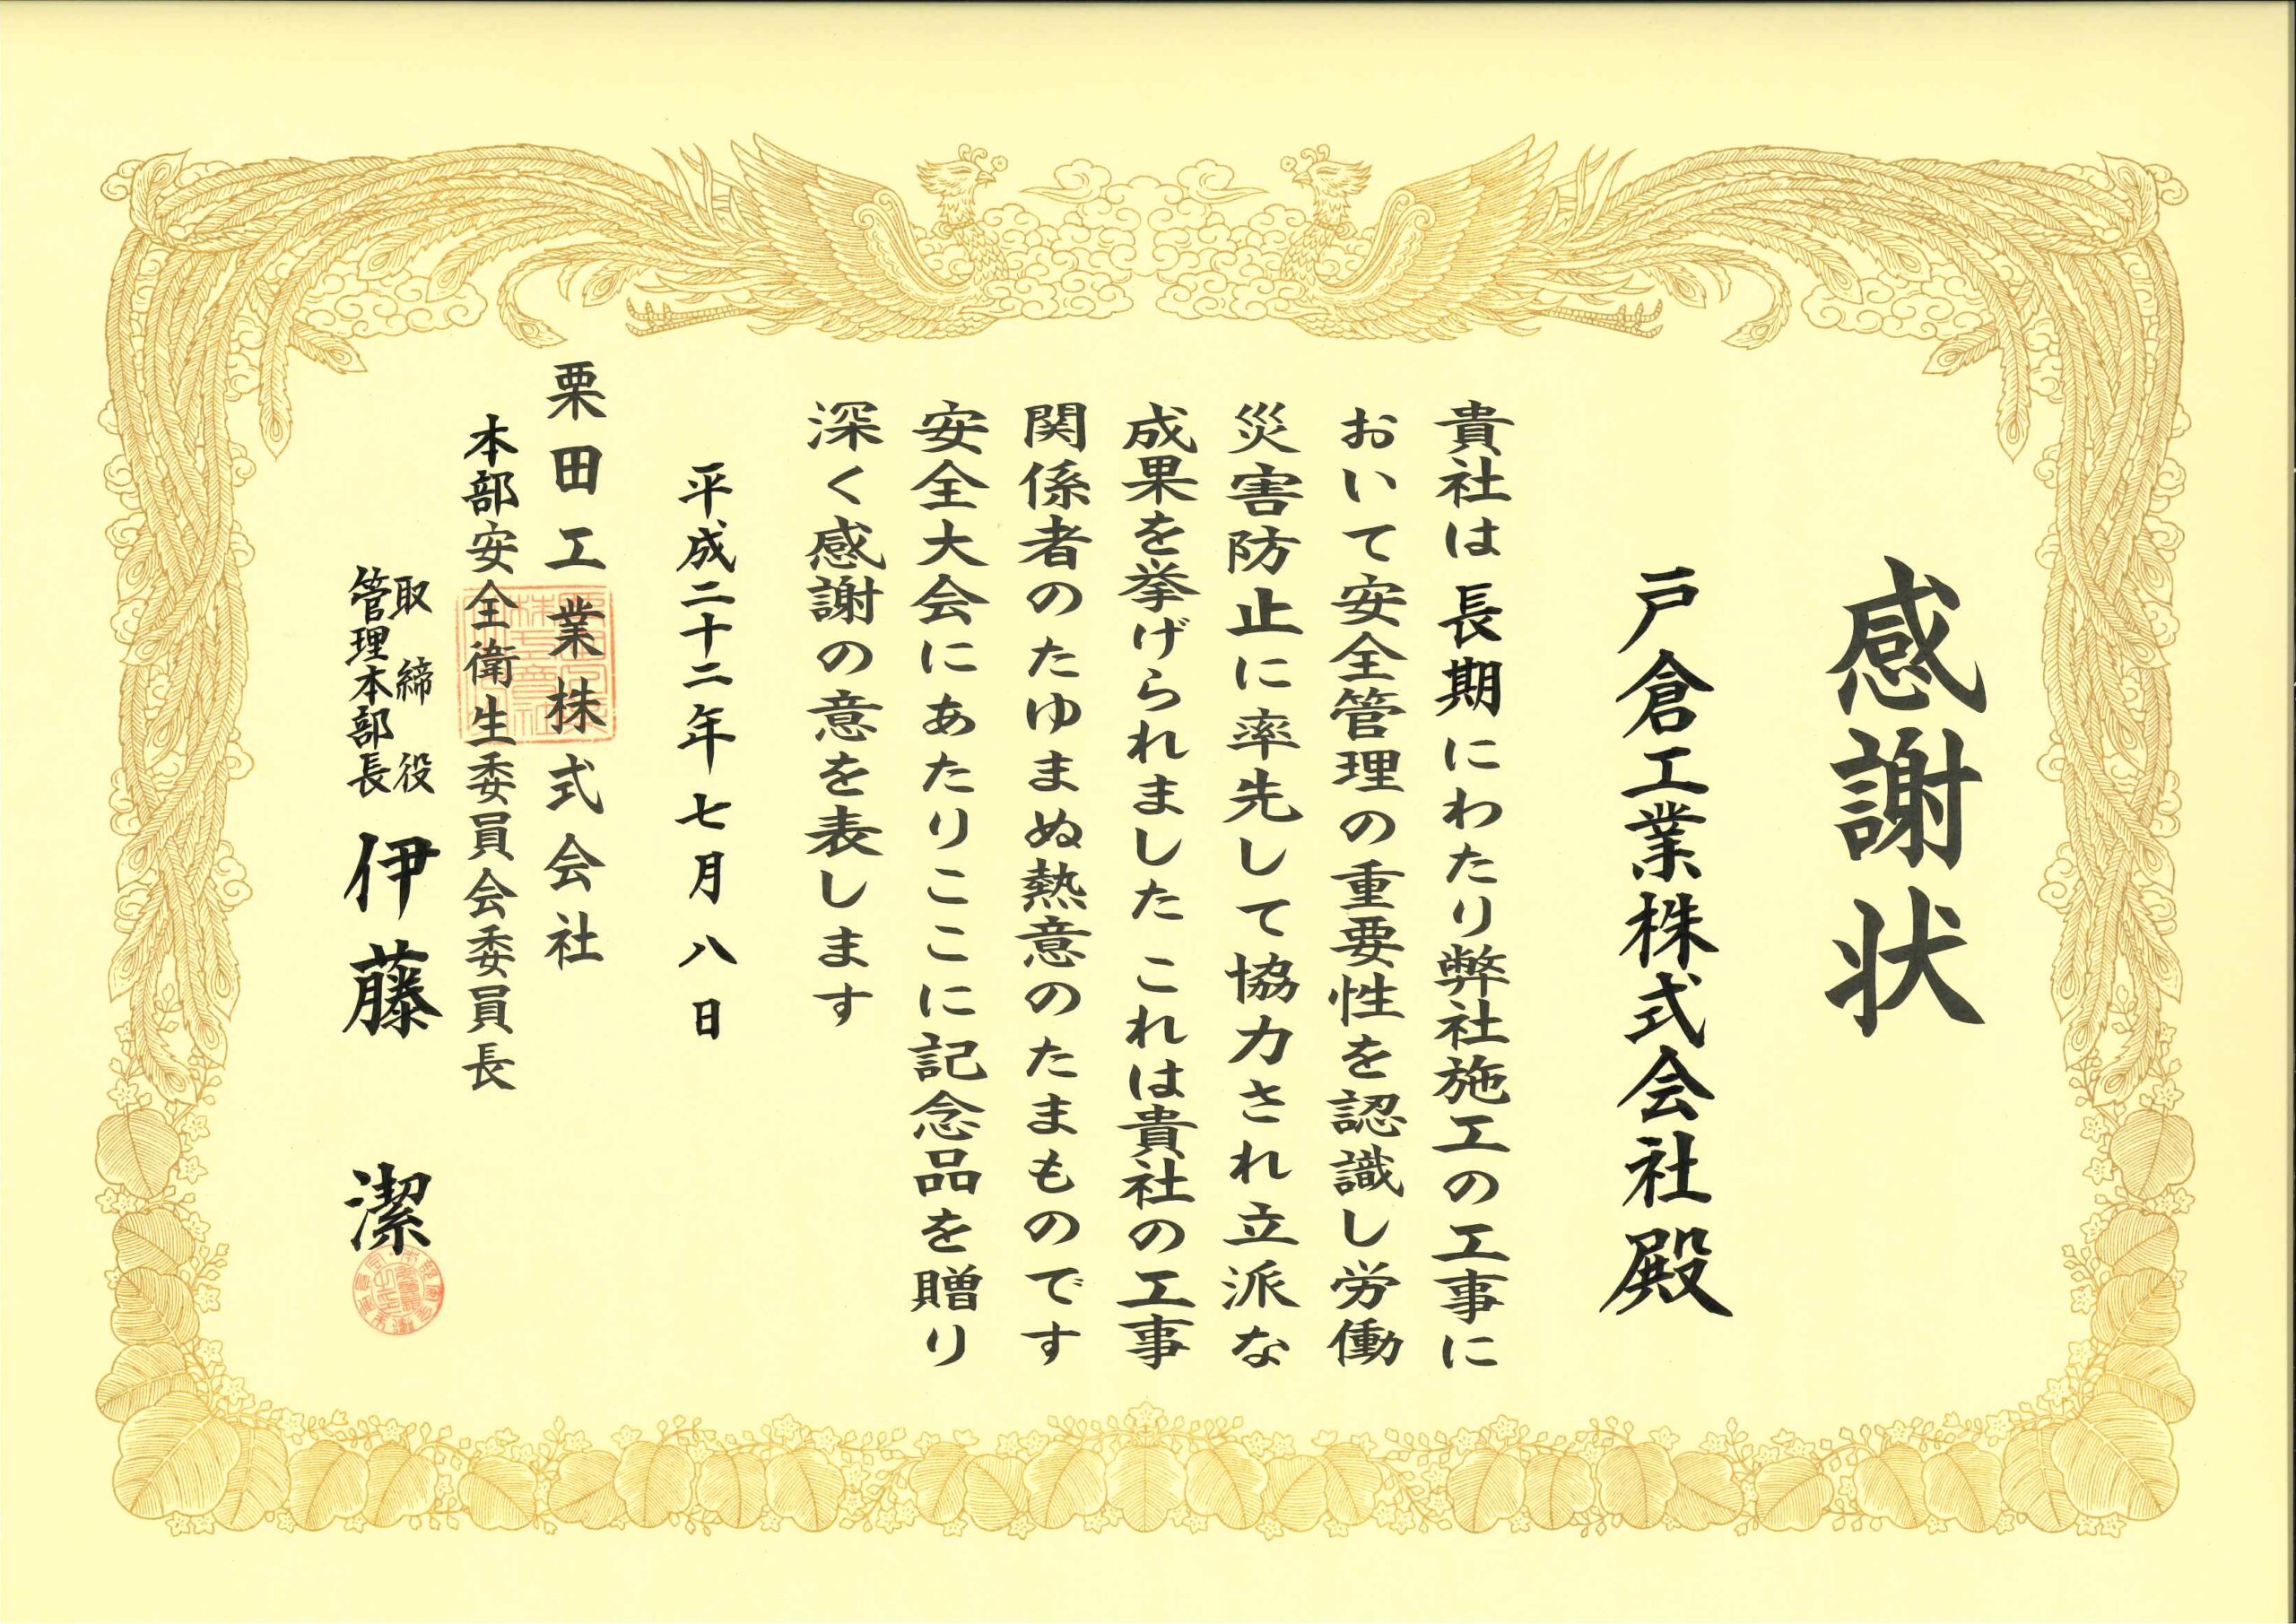 感謝状
戸倉工業株式会社殿
貴社は長期にわたり弊社施工の工事に
おいて安全管理の重要性を認識し労働
災害防止に率先して協力され立派な
成果を挙げられました これは貴社の工事
関係者のたゆまぬ熱意のたまものです
安全大会にあたりここに記念品を贈り
深く感謝の意を表します
平成二十二年七月八日
栗田工業株式会社
本部安全衛生委員会委員長
取締役
管理本部長
伊藤 潔